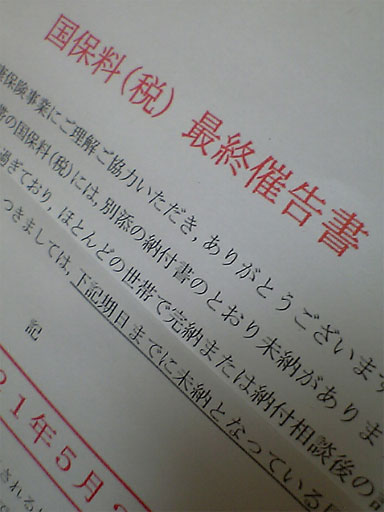 国保料(税) 最終催告書
保険事業にご理解ご協力いただき,ありがとうございます
の国保料(税)には,別添の納付書のとおり未納がありま
過ぎており,ほとんどの世帯で完納または納付相談後の
つきましては,下記期日までに未納となっている
記
21年5月
され